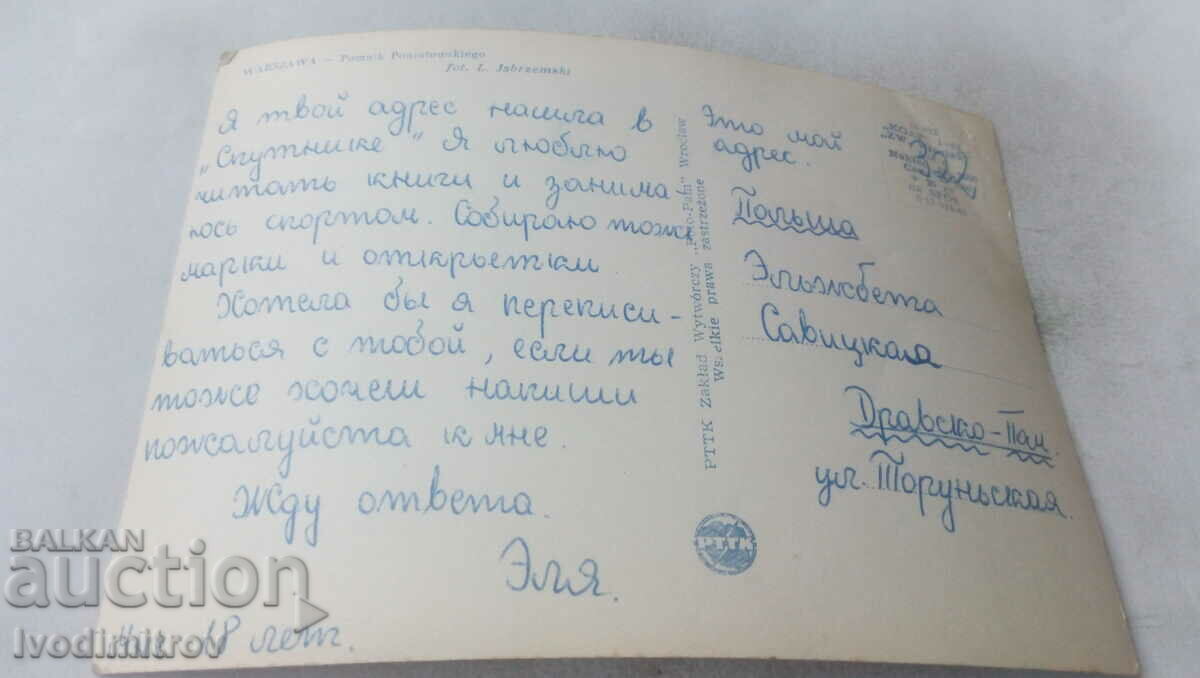 WARSZAWA – Pomnik Poniatowskiego
fot. L. Jabrzemski
Я твой адрес нашла в
„Спутнике" Я люблю
читать книги и занима-
юсь спортом. Собираю тоже
марки и открыетки
Хотела бы я переписи-
ваться с тобой, если ты
тоже хочеш напиши
пожалуйста к мне.
Жду ответа.
Эля.
Мне 18 лет.
PTTK Zakład Wytwórczy „Foto-Pam" Wrocław
Wszelkie prawa zastrzeżone
PTTK
Это мой
адрес.
322
Польша
Эльжбета
Савицкая
Дравско-Пом.
ул. Торуньская.
BALKAN
auction
Ivodimitrov